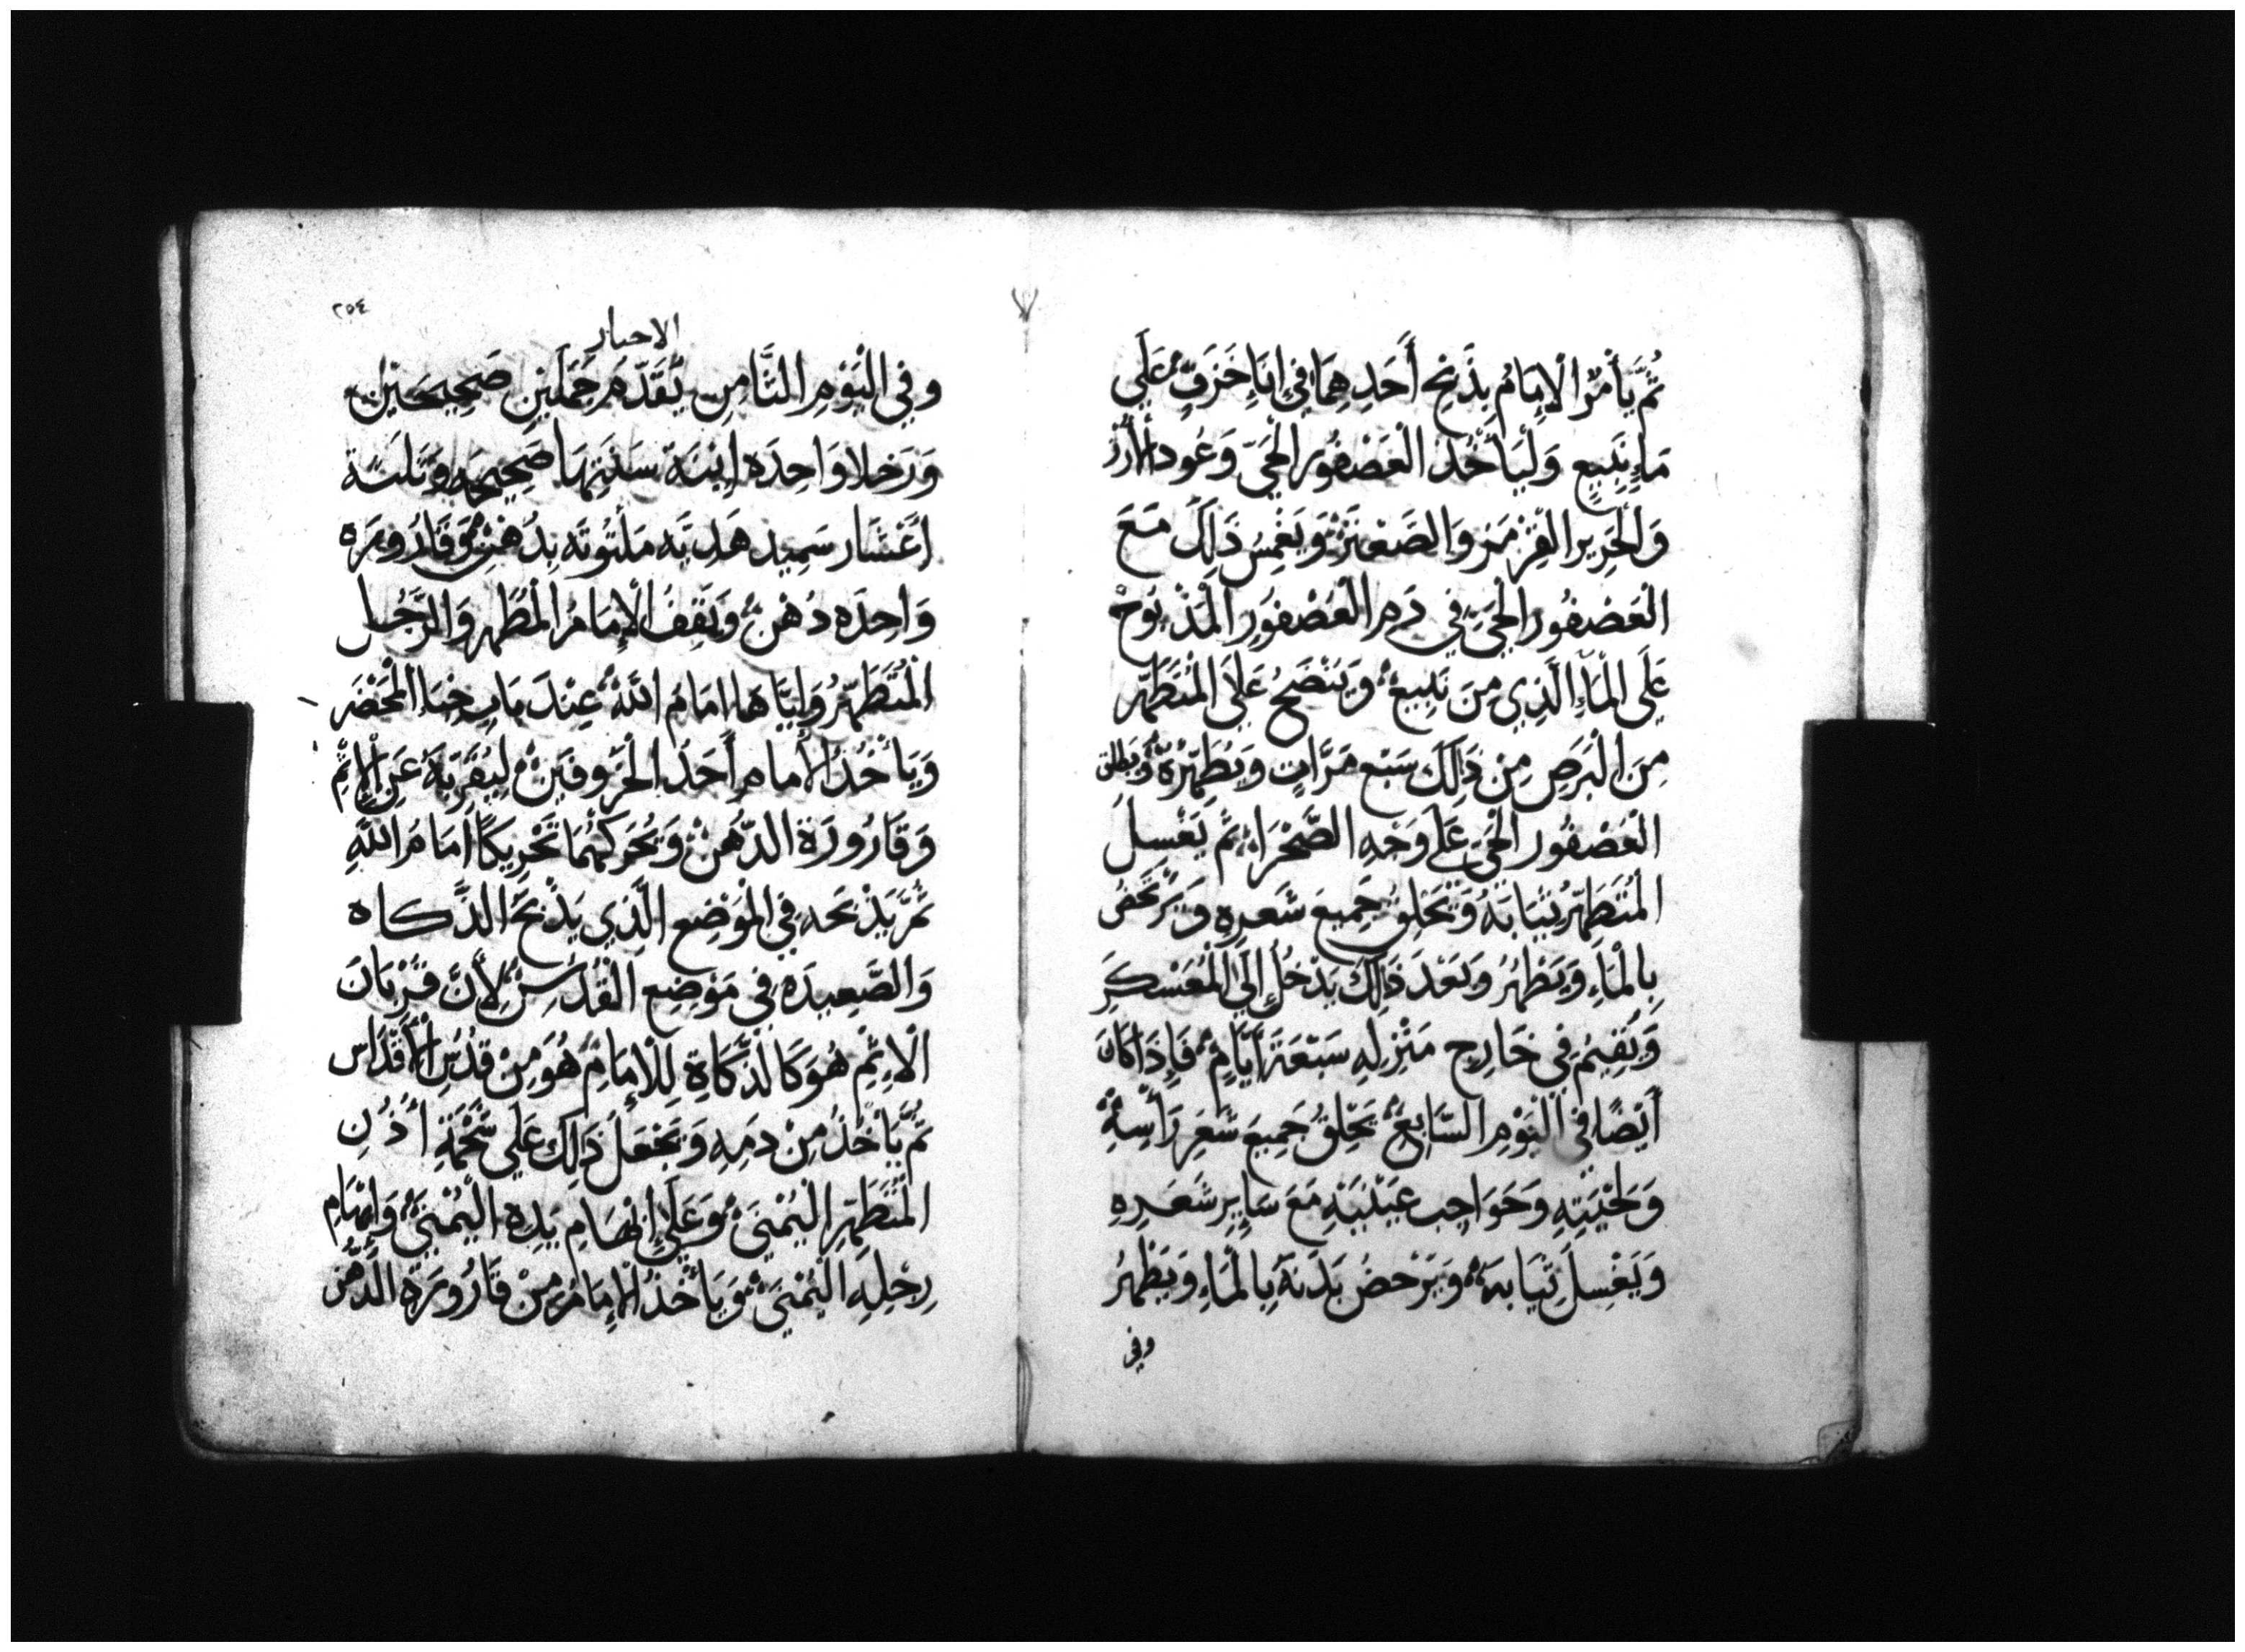 ثُمَّ يَأْمُرُ الْإِمَامُ بِذَبْحِ أَحَدِهِمَا فِي إِنَاءِ خَزَفٍ عَلَى
مَاءِ نَبِيعٍ وَلْيَأْخُذْ الْعَصْفُور الْحَيّ وَعُودَ الْأَرْز
وَالْحَرِير الْقِرْمَز وَالصَّعْتَرْ وَيَغْمِسُ ذَلِكَ مَعَ
الْعَصْفُور الْحَيّ فِي دَمِ الْعَصْفُورِ الْمَذْبُوحْ
عَلَى الْمَاءِ الَّذِي مِنَ نَبِيعْ وَيَنْضَحُ عَلَى الْمُتَطَهِّرِ
مِنَ الْبَرَصِ مِنْ ذَلِكَ سَبْع مَرَّاتٍ وَيُطَهِّرْهُ وَيُطْلِق
الْعَصْفُور الْحَيّ عَلَى وَجْهِ الصَّحْرَاء ثُمَّ يَغْسِلُ
الْمُتَطَهِّرُ ثِيَابَهُ وَيَحْلِقُ جَمِيعَ شَعرِهِ وَيَرْحَضُ
بِالْمَاءِ وَيَطْهُرُ وَبَعْدَ ذَلِكَ يَدْخُل إِلَى الْمُعَسْكَرِ
وَيُقِيمُ فِي خَارِج مَنْزِلِهِ سَبْعَةَ أَيَّامٍ فَإِذَا كَانَ
أَيْضًا فِي الْيَوْمِ السَّابِعُ يَحْلِقُ جَمِيعَ شَعرِ رَأْسِهِ
وَلِحْيَتِهِ وَحَوَاجِب عَيْنَيْهِ مَعَ سَايِرِ شَعَرِهِ
وَيَغْسِلُ ثِيَابَهُ وَيَرْحَضُ بَدَنَهُ بِالْمَاءِ وَيَطْهُرُ
وفي
٢٥٤
الاحبار
وفِي الْيَوْمِ الثَّامِنِ يُقَدِّمَ حَمَلَيْنِ صَحِيحَيْنِ
وَرَخلا وَاحِدَه ابْنَة سَنَتِهَا صَحِيحَه وَثَلثَة
اعْشَار سَمِيد هَدِيَّه مَلْتُوتَه بِدُهْنٍ وَقَارُورَه
وَاحِدَه دُهْنٍ وَيَقِفُ الْإِمَامُ الْمُطَهِر وَالرَّجُل
الْمُتَطَهِّرُ وَإِيَّاهَا امَامَ اللَّهْ عِنْدَ بَابِ خِبَاءِ الْمَحْضَرِ
وَيَأْخُذُ الْأمام أَحَدُ الْخَرُوفَيْنِ لِيُقَرِّبَهُ عَنِ الْإِثْمِ
وَقَارُورَة الدُّهنْ وَيُحَرِّكَهُمَا تَحْرِيكًا أَمَامَ اللَّهِ
ثُمَّ يَذْبَحه فِي الْمَوْضِع الَّذِي يَذْبَحُ الذَّكاه
وَالصَّعِيدَه فِي مَوْضِعِ الْقُدْسِ لِأَنَّ قُرْبَانَ
الْاثِمِ هُوَ كَالذَّكَاةِ لِلْإِمَامِ هُوَ مِنْ قدْسِ الْأَقْدَاس
ثُمَّ يَأْخُذُ مِنْ دَمِهِ وَيَجْعَلَ ذَلِكَ عَلَى شَحْمَةِ أُذُنِ
الْمُتَطَهِّرِ الْيُمْنَى وَعَلَى إِبْهَامِ يَدِهِ الْيُمْنَى وَإِبْهَامِ
رِجْلِهِ الْيُمْنَى وَيَأْخُذُ الْإِمَامُ مِنْ قَارُورَةِ الدُّهْنِ